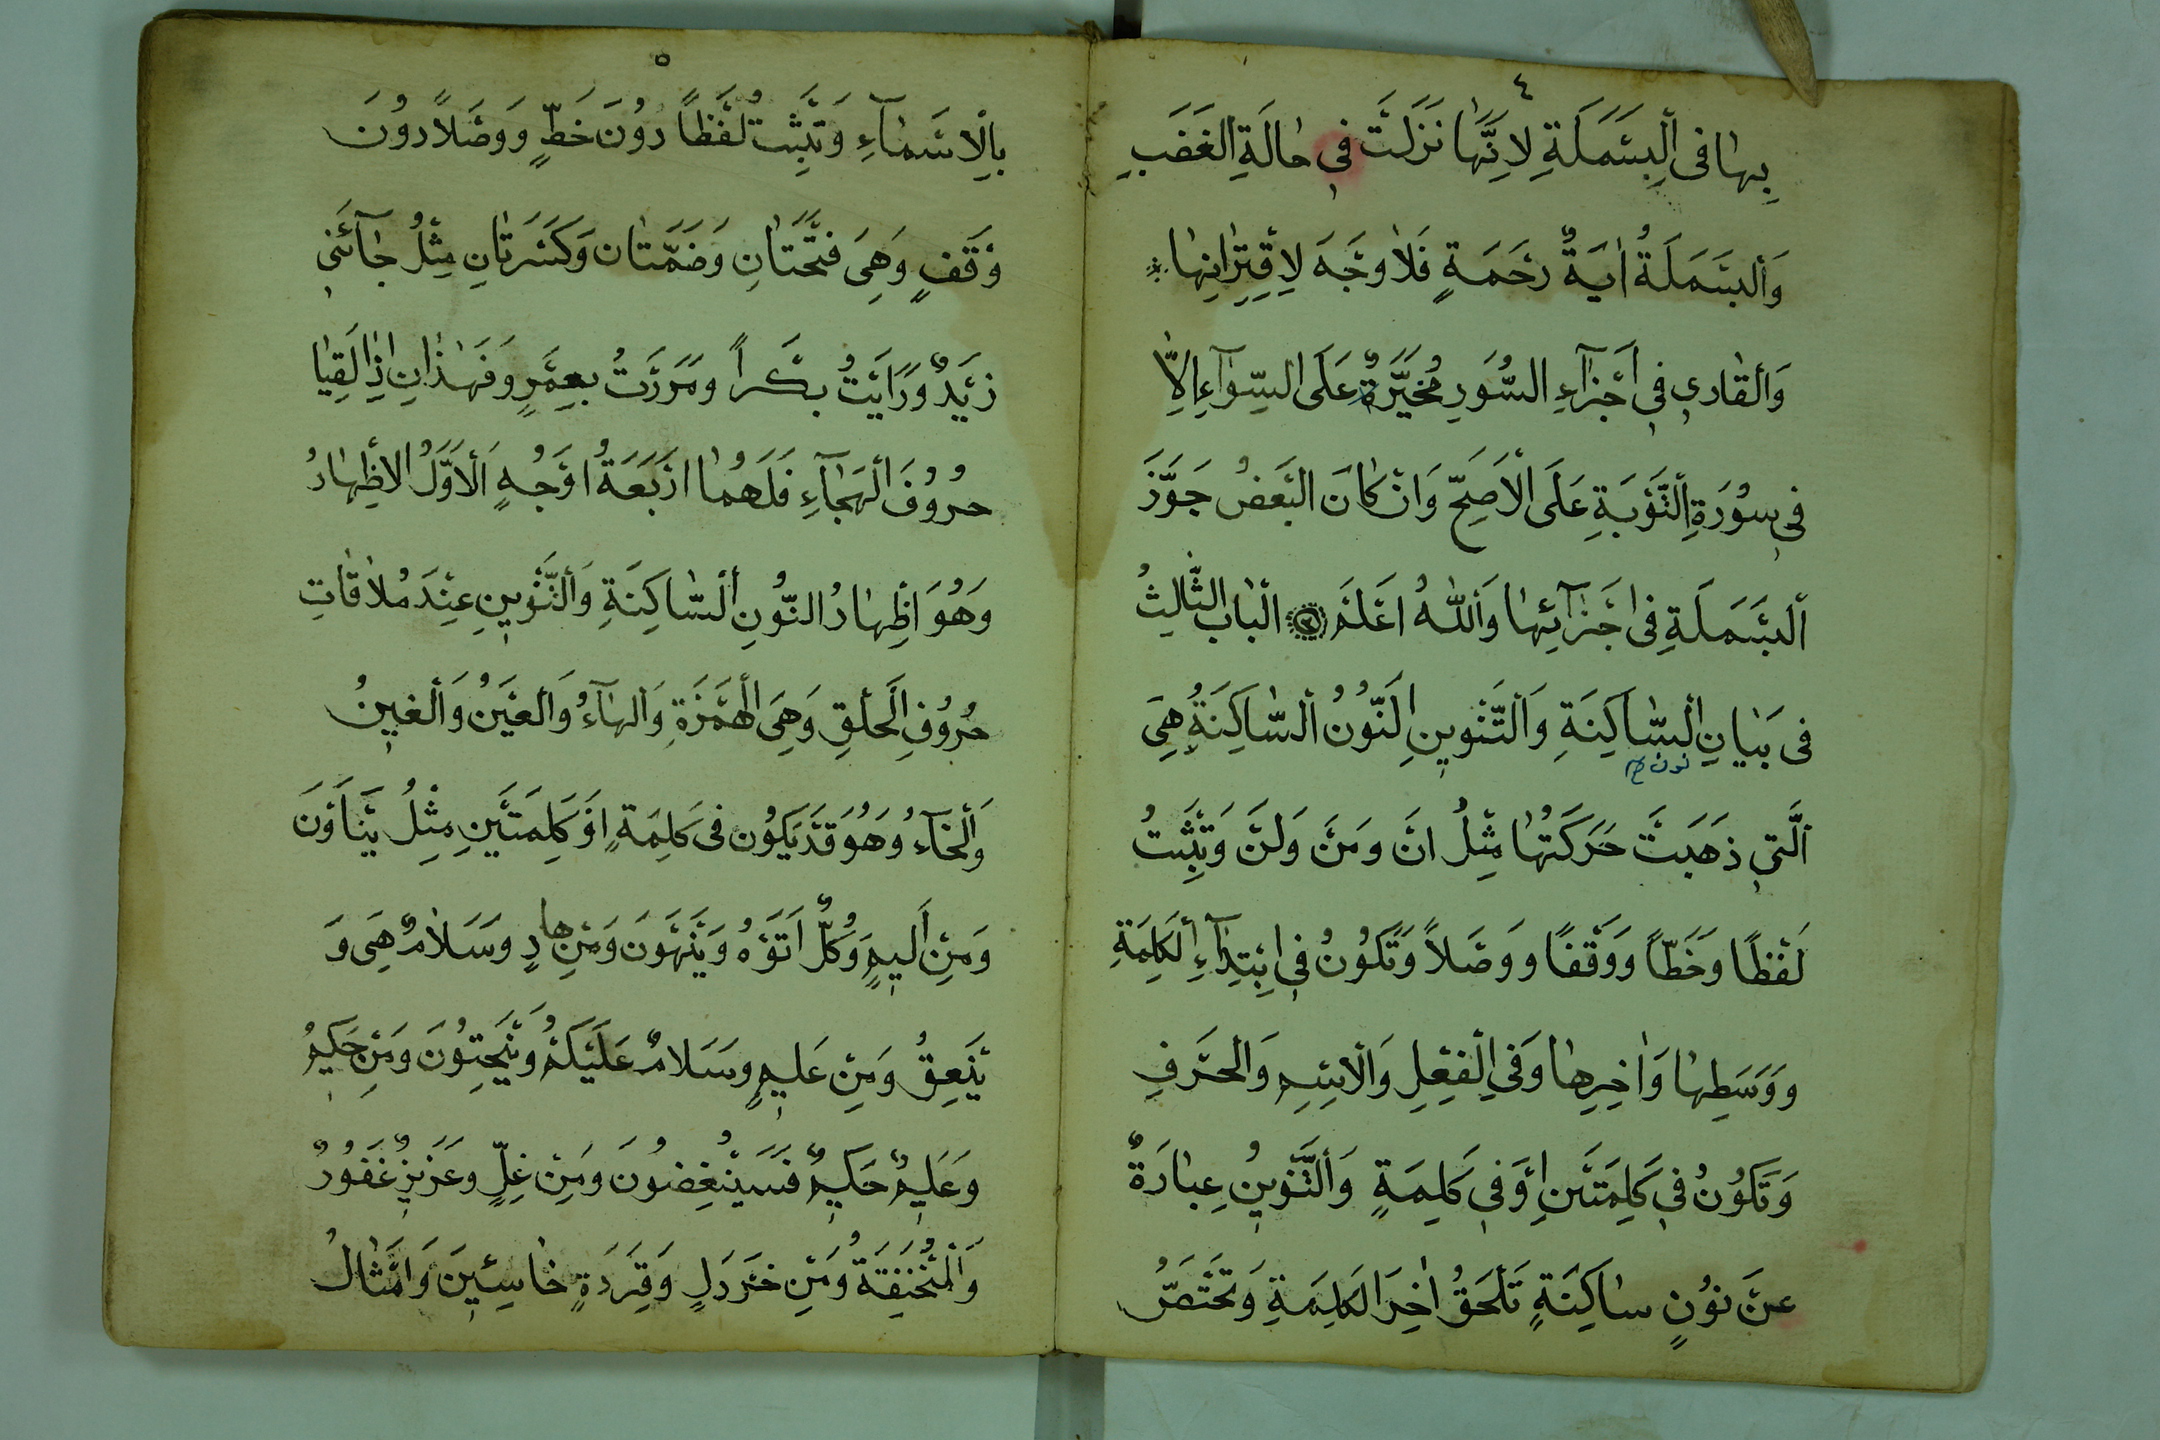 ٤
بِهٰا فِى اَلْبَسْمَلَةِ لِاَنَّهٰا نَزَلَتْ فِى حٰالَةِ الْغَضَبِ
وَاَلْبَسْمَلَةُ اٰيَةُ رَحْمَةٍ فَلٰا وَجْهَ لِاِقْتِرٰانِهٰا
وَاَلْقٰارِى فِى اَجْزٰآءِ السُّوَرِ مُخَيَّرٌ عَلَى السِّوٰآءِ اِلاّٰ
فِى سُوْرَةِ اَلتَّوْبَةِ عَلَى الْاَصَحِّ وَانْ كٰانَ الْبَعْضُ جَوَّزَ
اَلْبَسْمَلَةِ فِى اَجْزٰآئِهٰا وَاَللّٰهُ اَعْلَمُ الْبٰابُ الثّٰالِثُ
فِى بَيٰانِ اَلسّٰاكِنَةِ وَاَلتَّنْوِينِ اَلنُّوْنُ اَلسّٰاكِنَةُ هِىَ
نون صح
اَلَّتِى ذَهَبَتْ حَرَكَتُهٰا مِثْلُ انْ وَمَنْ وَلَنْ وَتَثْبُتُ
لَفْظًا وَخَطّاً وَوَقْفًا وَوَصْلاً وَتَكُوْنُ فِى اِبْتِدٰآءِ اَلْكَلِمَةِ
وَوَسَطِهٰا وَاٰخِرِهٰا وَفِى الْفِعْلِ وَالْاِسْمِ وَالْحَرْفِ
وَتَكُوْنُ فِى كَلِمَتَيْنِ اَوْ فِى كَلِمَةٍ وَاَلتَّنْوِينُ عِبٰارَةٌ
عَنْ نُوْنٍ سٰاكِنَةٍ تَلْحَقُ اٰخِرَ الْكَلِمَةِ وَتَخْتَصُّ
٥
بِالْاَسْمٰآءِ وَتَثْبُتُ لَفْظاً دُوْنَ خَطٍّ وَوَصْلاً دُوْنَ
وَقْفٍ وَهِىَ فَتْحَتٰانِ وَضَمَّتٰان وَكَسْرَتٰانِ مِثْلُ جٰآئَنِى
زَيْدٌ وَرَايْتُ بَكْراً وَمَرَرْتُ بِعَمْرٍو فَهٰذٰانِ اِذٰا لَقِيٰا
حُرُوُفَ اَلْهَجٰآءِ فَلَهُمٰا ارْبَعَةُ اوْجُهٍ اَلْاَوَّلُ الْاِظْهٰارُ
وَهُوَ اِظْهٰارُ النُّوْنِ اَلسّٰاكِنَةِ وَاَلتَّنْوِينِ عِنْدَ مُلٰاقٰاتِ
حُرُوُفِ الْحَلْقِ وَهِىَ الْهَمْزَةُ وَالْهٰآءُ وَاَلْعَيْنُ وَاَلْغَيْنُ
وَالْخٰآءُ وَهُوَ قَدْ يَكُوْن فِى كَلِمَةٍ اوْ كَلِمَتَيْنِ مِثْلُ يَنْاَوْنَ
وَمِنْ اَلِيمٍ وَكُلٌّ اَتَوْهُ وَيَنْهَوْنَ وَمِنْ هٰادٍ وَسَلٰامٌ هِىَ وَ
يَنْعِقُ وَمِنْ عَلِيمٍ وَسَلامٌ عَلَيْكُمْ وَيَنْحِتُونَ وَمِنْ حَكِيمٍ
وَعَلِيمٌ حَكِيمٌ فَسَيُنْغِضُونَ وَمِنْ غِلٍّ وَعَزِيزٌ غَفُوْرٌ
وَاَلْمُنْخَنِقَةُ وَمِنْ خَرْدَلٍ وَقِرَدَةٍ خٰاسِئِينَ وَامْثٰالُ